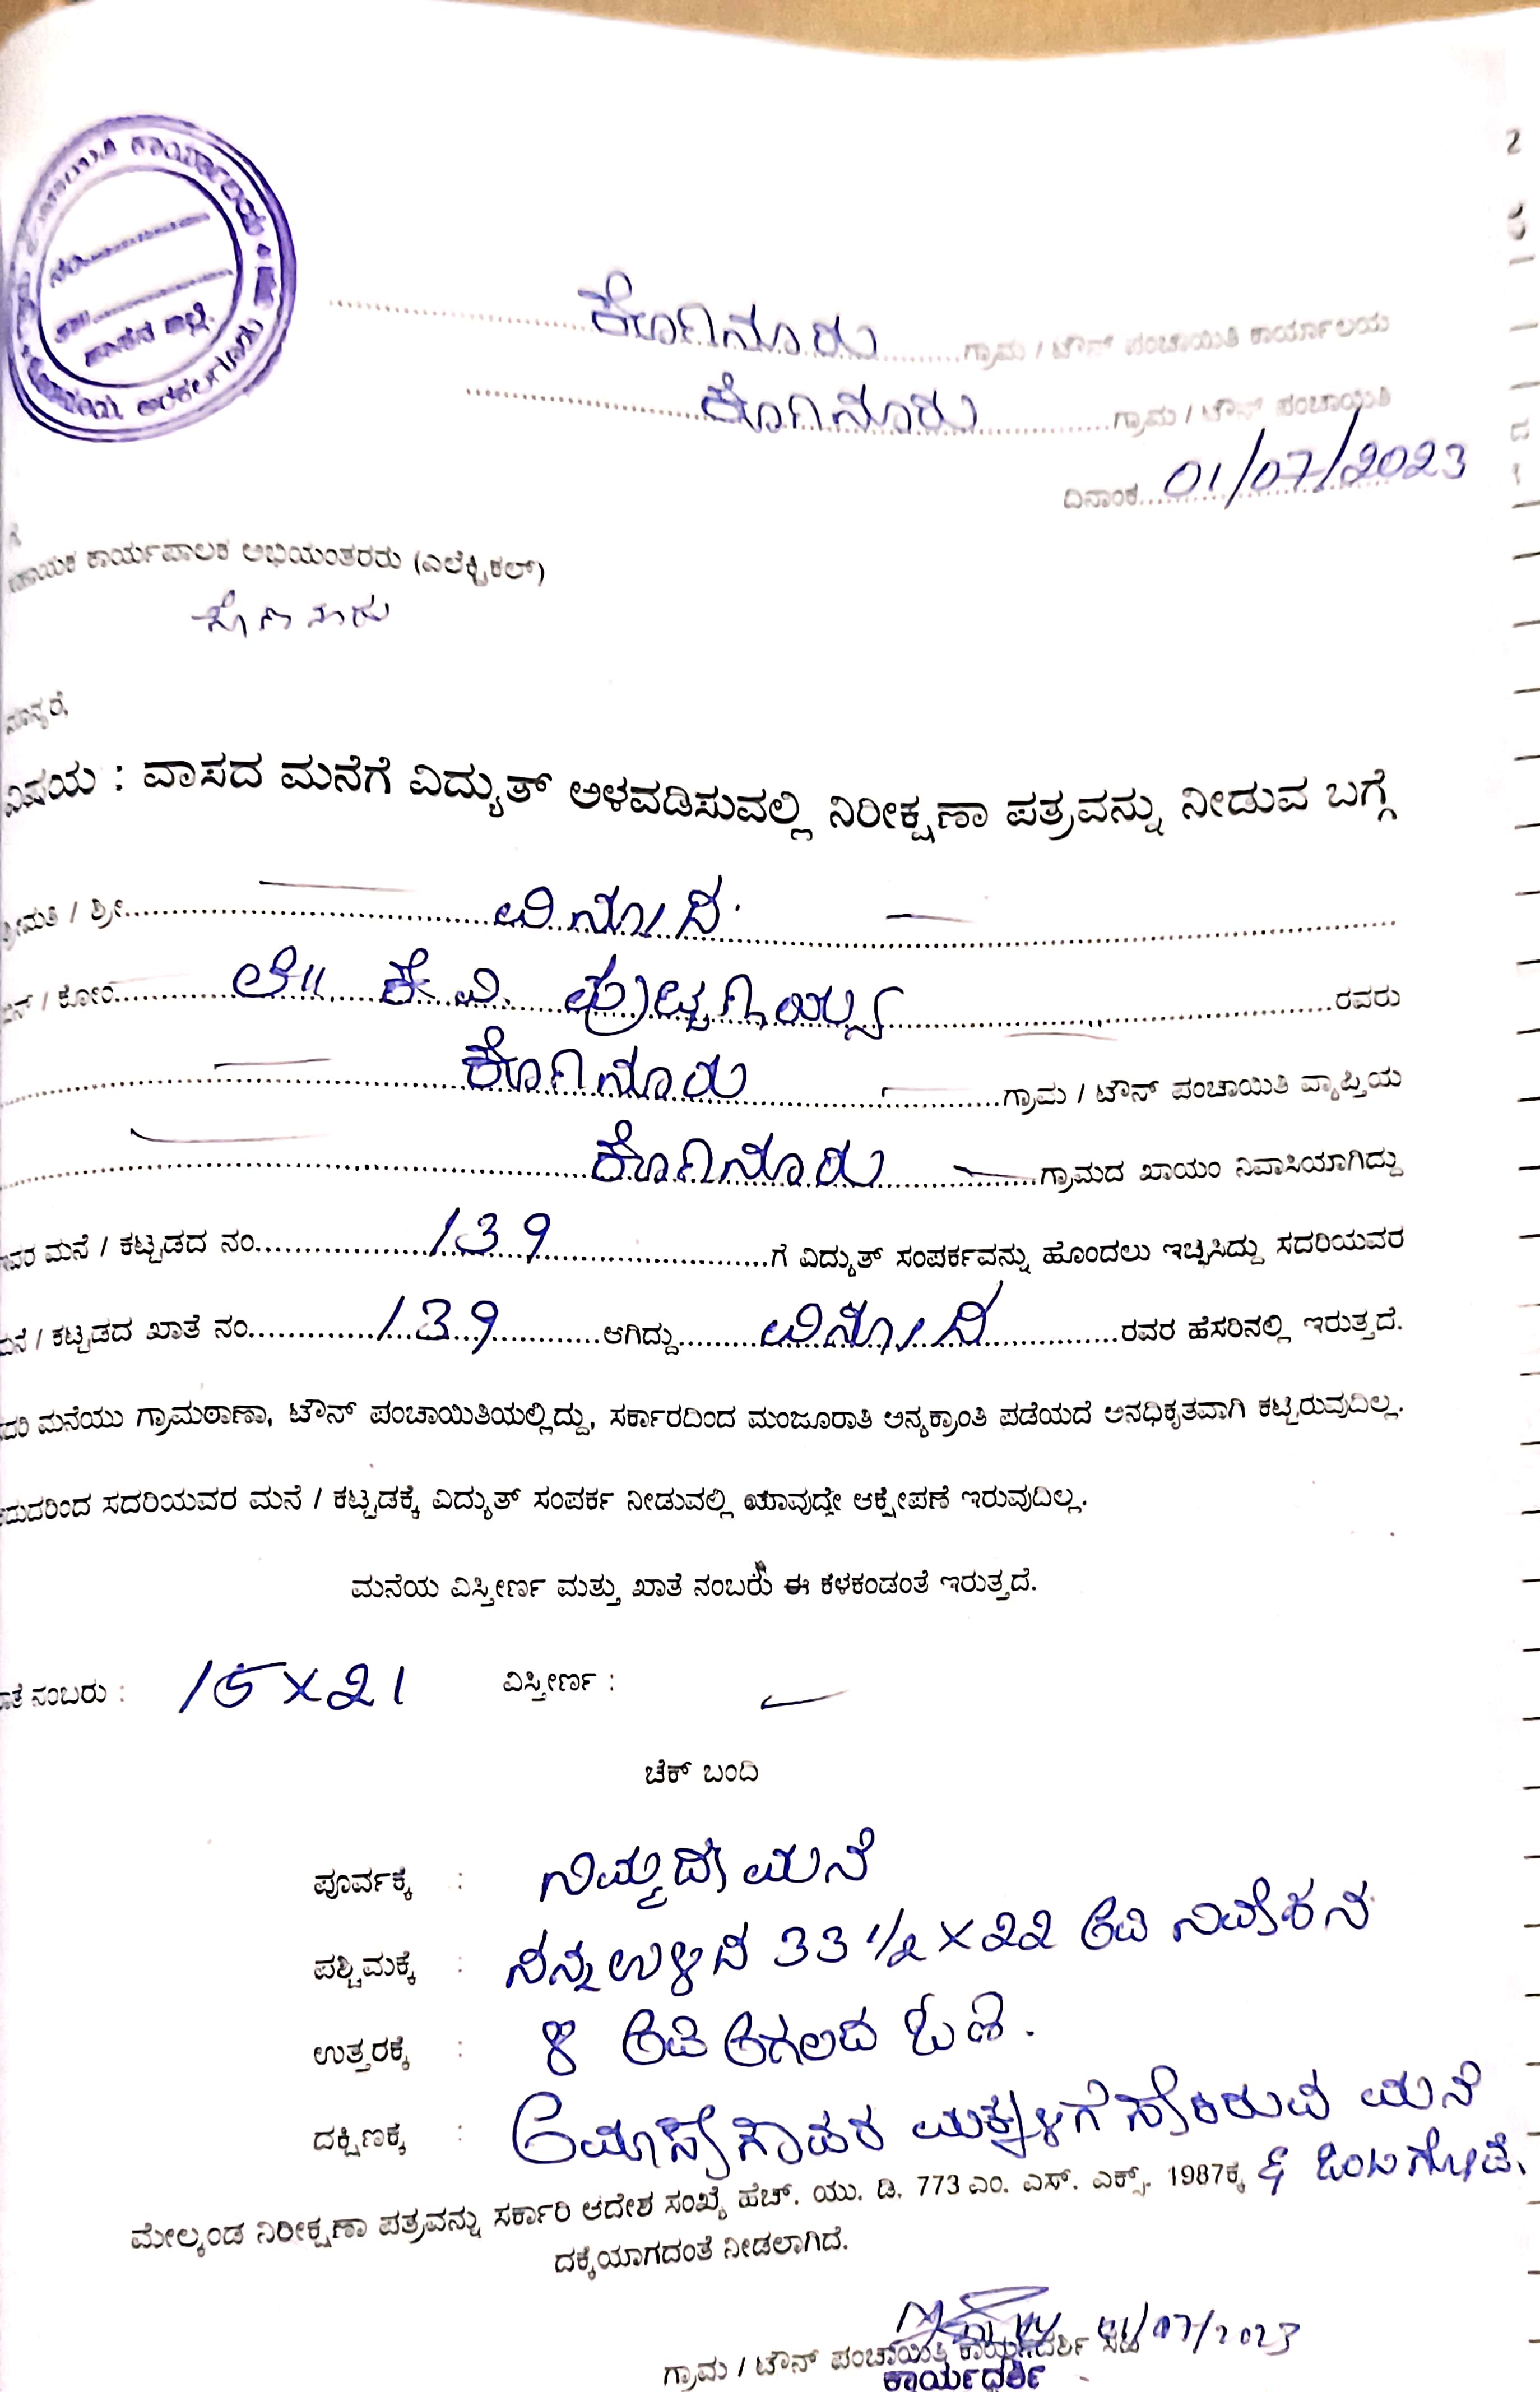 ಕಾರ್ಯಾಲಯ
ನಂ..............
ತಾ||..............
ಹಾಸನ ಜಿಲ್ಲೆ.
ಅರಕಲಗೂಡು
ಕೊಣನೂರು ಗ್ರಾಮ / ಟೌನ್ ಪಂಚಾಯಿತಿ ಕಾರ್ಯಾಲಯ
ಕೊಣನೂರು ಗ್ರಾಮ / ಟೌನ್ ಪಂಚಾಯಿತಿ
ದಿನಾಂಕ 01/07/2023
ಕಾರ್ಯಪಾಲಕ ಅಭಿಯಂತರರು (ಎಲೆಕ್ಟ್ರಿಕಲ್)
ಕೊಣನೂರು
ಮಾನ್ಯರೆ,
ವಿಷಯ : ವಾಸದ ಮನೆಗೆ ವಿದ್ಯುತ್ ಅಳವಡಿಸುವಲ್ಲಿ ನಿರೀಕ್ಷಣಾ ಪತ್ರವನ್ನು ನೀಡುವ ಬಗ್ಗೆ
ಶ್ರೀಮತಿ / ಶ್ರೀ ವಿನೋದ
ಬಿನ್ / ಕೋಂ ಲೇ|| ಕೆ. ವಿ. ಪುಟ್ಟಣ್ಣಯ್ಯ ರವರು
ಕೊಣನೂರು ಗ್ರಾಮ / ಟೌನ್ ಪಂಚಾಯಿತಿ ವ್ಯಾಪ್ತಿಯ
ಕೊಣನೂರು ಗ್ರಾಮದ ಖಾಯಂ ನಿವಾಸಿಯಾಗಿದ್ದು
ಮನೆ / ಕಟ್ಟಡದ ನಂ 139 ಗೆ ವಿದ್ಯುತ್ ಸಂಪರ್ಕವನ್ನು ಹೊಂದಲು ಇಚ್ಛಿಸಿದ್ದು ಸದರಿಯವರ
ಮನೆ / ಕಟ್ಟಡದ ಖಾತೆ ನಂ 139 ಆಗಿದ್ದು ವಿನೋದ ರವರ ಹೆಸರಿನಲ್ಲಿ ಇರುತ್ತದೆ.
ಸದರಿ ಮನೆಯು ಗ್ರಾಮಠಾಣಾ, ಟೌನ್ ಪಂಚಾಯಿತಿಯಲ್ಲಿದ್ದು, ಸರ್ಕಾರದಿಂದ ಮಂಜೂರಾತಿ ಅನ್ಯಕ್ರಾಂತಿ ಪಡೆಯದೆ ಅನಧಿಕೃತವಾಗಿ ಕಟ್ಟಿರುವುದಿಲ್ಲ.
ಆದುದರಿಂದ ಸದರಿಯವರ ಮನೆ / ಕಟ್ಟಡಕ್ಕೆ ವಿದ್ಯುತ್ ಸಂಪರ್ಕ ನೀಡುವಲ್ಲಿ ಯಾವುದೇ ಆಕ್ಷೇಪಣೆ ಇರುವುದಿಲ್ಲ.
ಮನೆಯ ವಿಸ್ತೀರ್ಣ ಮತ್ತು ಖಾತೆ ನಂಬರು ಈ ಕಳಕಂಡಂತೆ ಇರುತ್ತದೆ.
ಖಾತೆ ನಂಬರು : 15×21 ವಿಸ್ತೀರ್ಣ :
ಚೆಕ್ ಬಂದಿ
ಪೂರ್ವಕ್ಕೆ : ನಿಮ್ಮದೇ ಮನೆ
ಪಶ್ಚಿಮಕ್ಕೆ : ನನ್ನ ಉಳಿದ 33 1/2 × 22 ಅಡಿ ನಿವೇಶನ
ಉತ್ತರಕ್ಕೆ : 8 ಅಡಿ ಅಗಲದ ಓಣಿ.
ದಕ್ಷಿಣಕ್ಕೆ : ಮಕ್ಕಳಿಗೆ ಸೇರಿರುವ ಮನೆ
ಮೇಲ್ಕಂಡ ನಿರೀಕ್ಷಣಾ ಪತ್ರವನ್ನು ಸರ್ಕಾರಿ ಆದೇಶ ಸಂಖ್ಯೆ ಹೆಚ್. ಯು. ಡಿ. 773 ಎಂ. ಎಸ್. ಎಕ್ಸ್. 1987ಕ್ಕೆ & ಒಂಟಿಗೋಡೆ.
ದಕ್ಕೆಯಾಗದಂತೆ ನೀಡಲಾಗಿದೆ.
01/07/2023
ಗ್ರಾಮ / ಟೌನ್ ಪಂಚಾಯಿತಿ ಕಾರ್ಯದರ್ಶಿ ಸಹಿ
ಕಾರ್ಯದರ್ಶಿ